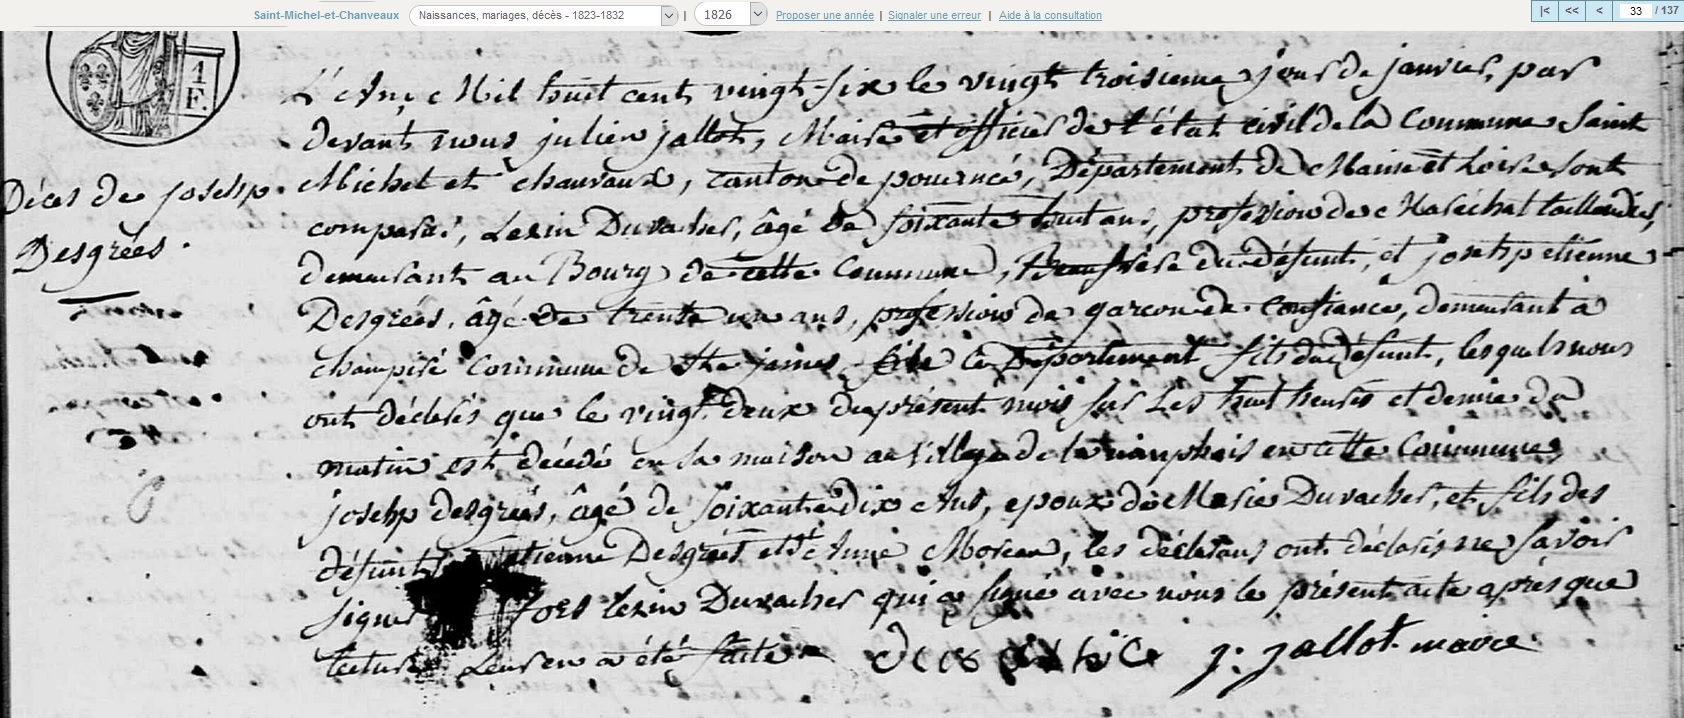 Saint-Michel-et-Chanveaux
Naissances, mariages, décès - 1823-1832
|
1826
Proposer une année | Signaler une erreur | Aide à la consultation
|< << < 33 / 137
1
F.
Décès de josehp
Desgrées.
L'An Mil huit cent vingt-six le vingt troisieme jour de janvier, par
devant nous julien jallot, Maire et officier de l'état civil de la Commune Saint
Michel et chauvaux, canton de pouencé, Département de Maine et Loire sont
comparus, Lezin Duvacher, âgé de soixante huit ans, profession de Maréchal taillandier,
demeurant au Bourg de cette Commune, Beaufrère du défunt, et josehp etienne
Desgrées, âgé de trente un ans, profession de garcon de confiance, demeurant à
champiré Commune de ste jaime ce Département fils du défunt, lesquels nous
ont déclarés que le vingt deux du présent mois sur Les huit heures et demie du
matin est décédé en sa maison au village de la en cette Commune,
josehp desgrées, âgé de soixante dix Ans, epoux de Marie Duvacher, et fils des
défunts etienne Desgrées et Anne Moreau, les déclarans ont déclarés ne savoir
signer fors lezin Duvacher qui a signé avec nous le présent acte après que
lecture Leur en a été faite
j: jallot maire